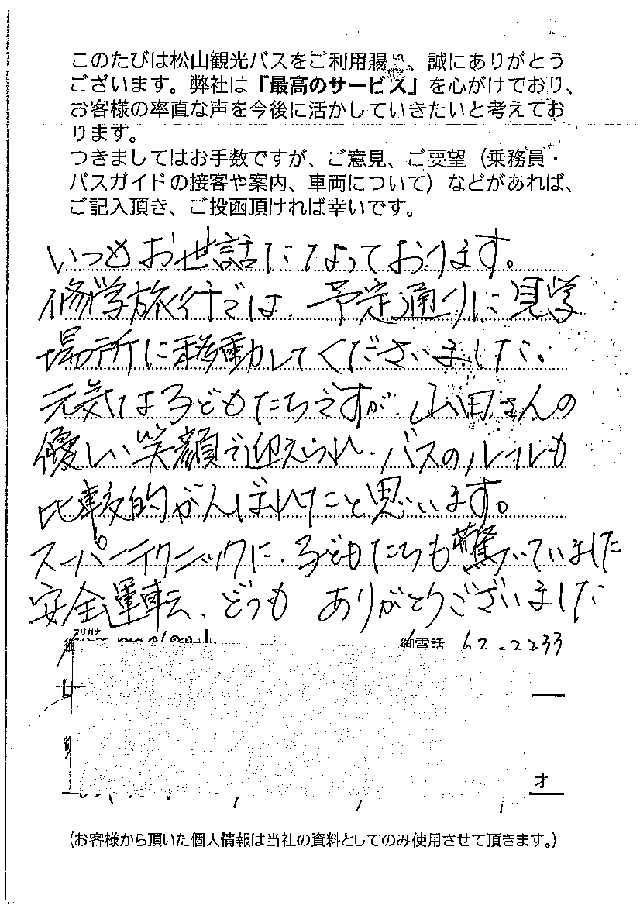 このたびは松山観光バスをご利用賜り、誠にありがとう
ございます。弊社は「最高のサービス」を心がけており、
お客様の率直な声を今後に活かしていきたいと考えてお
ります。
つきましてはお手数ですが、ご意見、ご要望（乗務員・
バスガイドの接客や案内、車両について）などがあれば、
ご記入頂き、ご投函頂ければ幸いです。
いつもお世話になっております。
修学旅行では、予定通りに見学
場所に移動してくださいました。
元気な子どもたちですが、山田さんの
優しい笑顔で迎えられ、バスのルールも
比較的がんばれたこと思います。
スーパーテクニックに、子どもたちも驚いていました
安全運転、どうも ありがとうございました
フリガナ
御電話 62-2233
オ
(お客様から頂いた個人情報は当社の資料としてのみ使用させて頂きます。)